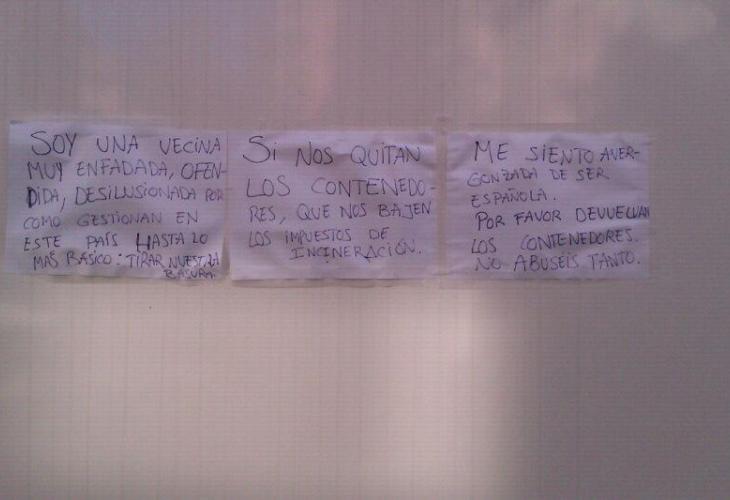 SOY UNA VECINA
MUY ENFADADA, OFEN-
DIDA, DESILUSIONADA POR
COMO GESTIONAN EN
ESTE PAÍS HASTA LO
MAS BÁSICO: TIRAR NUESTRA
BASURA.
Si NOS QUITAN
LOS CONTENEDO-
RES, QUE NOS BAJEN
LOS IMPUESTOS DE
INCINERACIÓN.
ME SIENTO AVER-
GONZADA DE SER
ESPAÑOLA.
POR FAVOR DEVUELVAN
LOS CONTENEDORES.
NO ABUSÉIS TANTO.